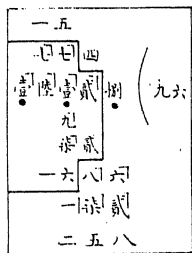 一五
七七四
壹陸壹貳捌
九六
九
柒貳
一六八六
一柒貳
二五八